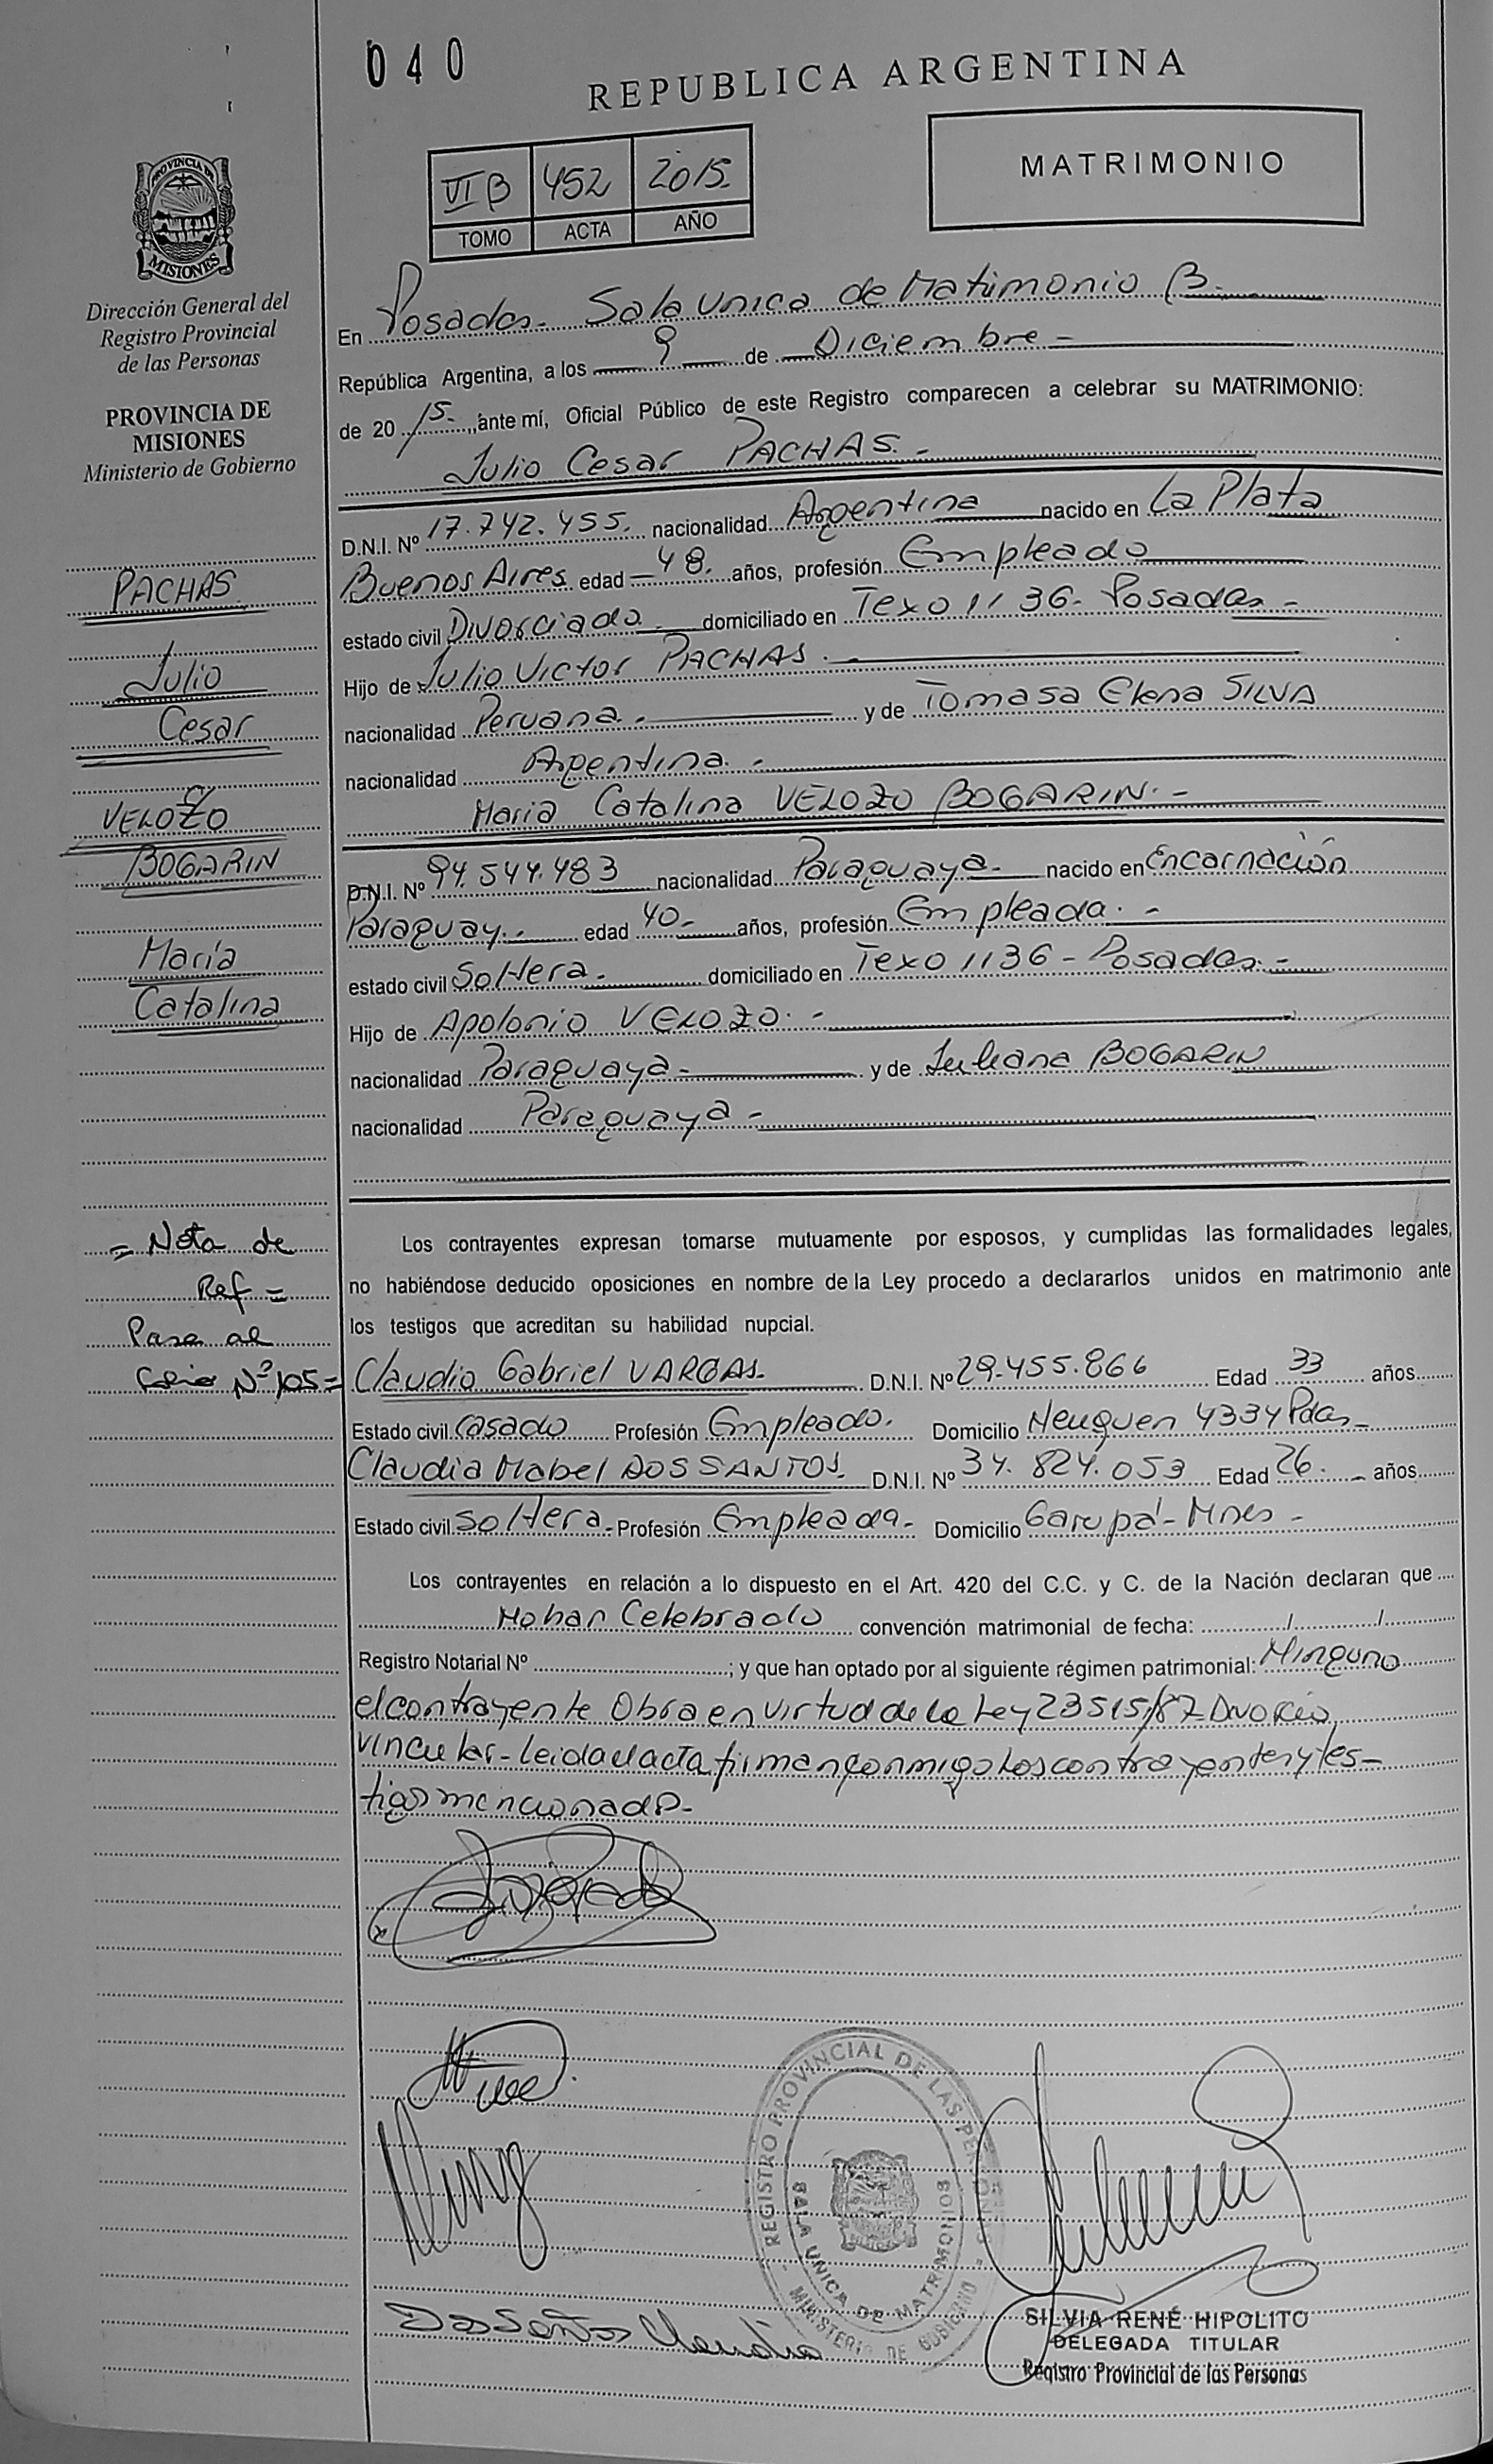 040
REPUBLICA ARGENTINA
VI B 452 2015.
TOMO ACTA AÑO
MATRIMONIO
PROVINCIA DE
MISIONES
Dirección General del
Registro Provincial
de las Personas
PROVINCIA DE
MISIONES
Ministerio de Gobierno
En Posadas- Sala Unica de Matrimonio B.
República Argentina, a los 9 de Diciembre -
de 20 15. ,,ante mí, Oficial Público de este Registro comparecen a celebrar su MATRIMONIO:
Julio Cesar PACHAS. -
D.N.I. Nº 17.742.455. nacionalidad Argentina nacido en La Plata
Buenos Aires edad - 48. años, profesión Empleado
estado civil Divorciado domiciliado en Texo 1136- Posadas -
Hijo de Julio Victor PACHAS. -
nacionalidad Peruana. - y de Tomasa Elena SILVA
nacionalidad Argentina. -
Maria Catalina VELOZO BOGARIN. -
D.N.I. Nº 94.544.483 nacionalidad Paraguaya- nacido en Encarnación
Paraguay. - edad 40- años, profesión Empleada. -
estado civil Soltera- domiciliado en Texo 1136 - Posadas. -
Hijo de Apolonio VELOZO. -
nacionalidad Paraguaya - y de Juliana BOGARIN
nacionalidad Paraguaya -
PACHAS
Julio
Cesar
VELOZO
BOGARIN
María
Catalina
= Nota de
Ref =
Pasa al
Folio Nº 105 =
Los contrayentes expresan tomarse mutuamente por esposos, y cumplidas las formalidades legales,
no habiéndose deducido oposiciones en nombre de la Ley procedo a declararlos unidos en matrimonio ante
los testigos que acreditan su habilidad nupcial.
Claudio Gabriel VARGAS. D.N.I. Nº 29.455.866 Edad 33 años
Estado civil Casado Profesión Empleado. Domicilio Neuquen 4334 Pdas -
Claudia Mabel DOS SANTOS. D.N.I. Nº 34.824.053 Edad 26. años
Estado civil Soltera- Profesión Empleada- Domicilio Garupá- Mnes -
Los contrayentes en relación a lo dispuesto en el Art. 420 del C.C. y C. de la Nación declaran que
No han Celebrado convención matrimonial de fecha: / /
Registro Notarial Nº ; y que han optado por al siguiente régimen patrimonial: Ninguno
el contrayente Obra en virtud de la Ley 23515/87- Divorcio
vincular- Leida el acta firman conmigo los contrayentes y tes-
tigos mencionado-
REGISTRO PROVINCIAL DE LAS PERSONAS
SALA UNICA DE MATRIMONIOS
MINISTERIO DE GOBIERNO
Dos Santos Claudia
SILVIA RENÉ HIPOLITO
DELEGADA TITULAR
Registro Provincial de las Personas